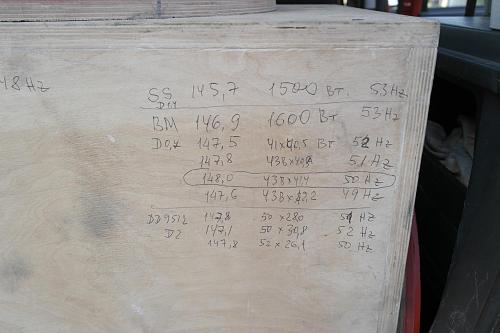 48Hz
SS 145,7 1500 Вт. 53Hz
D1,1
BM 146,9 1600 Вт 53Hz
D0,4 147,5 41x40,5 Вт 52 Hz
147,8 43Вx40,8 51 Hz
148,0 43Вx41,4 50 Hz
147,6 43Вx42,2 49 Hz
DD9512 147,8 50 x 28,0 51 Hz
D2 147,1 50 x 30,8 52 Hz
147,8 52 x 26,1 50 Hz